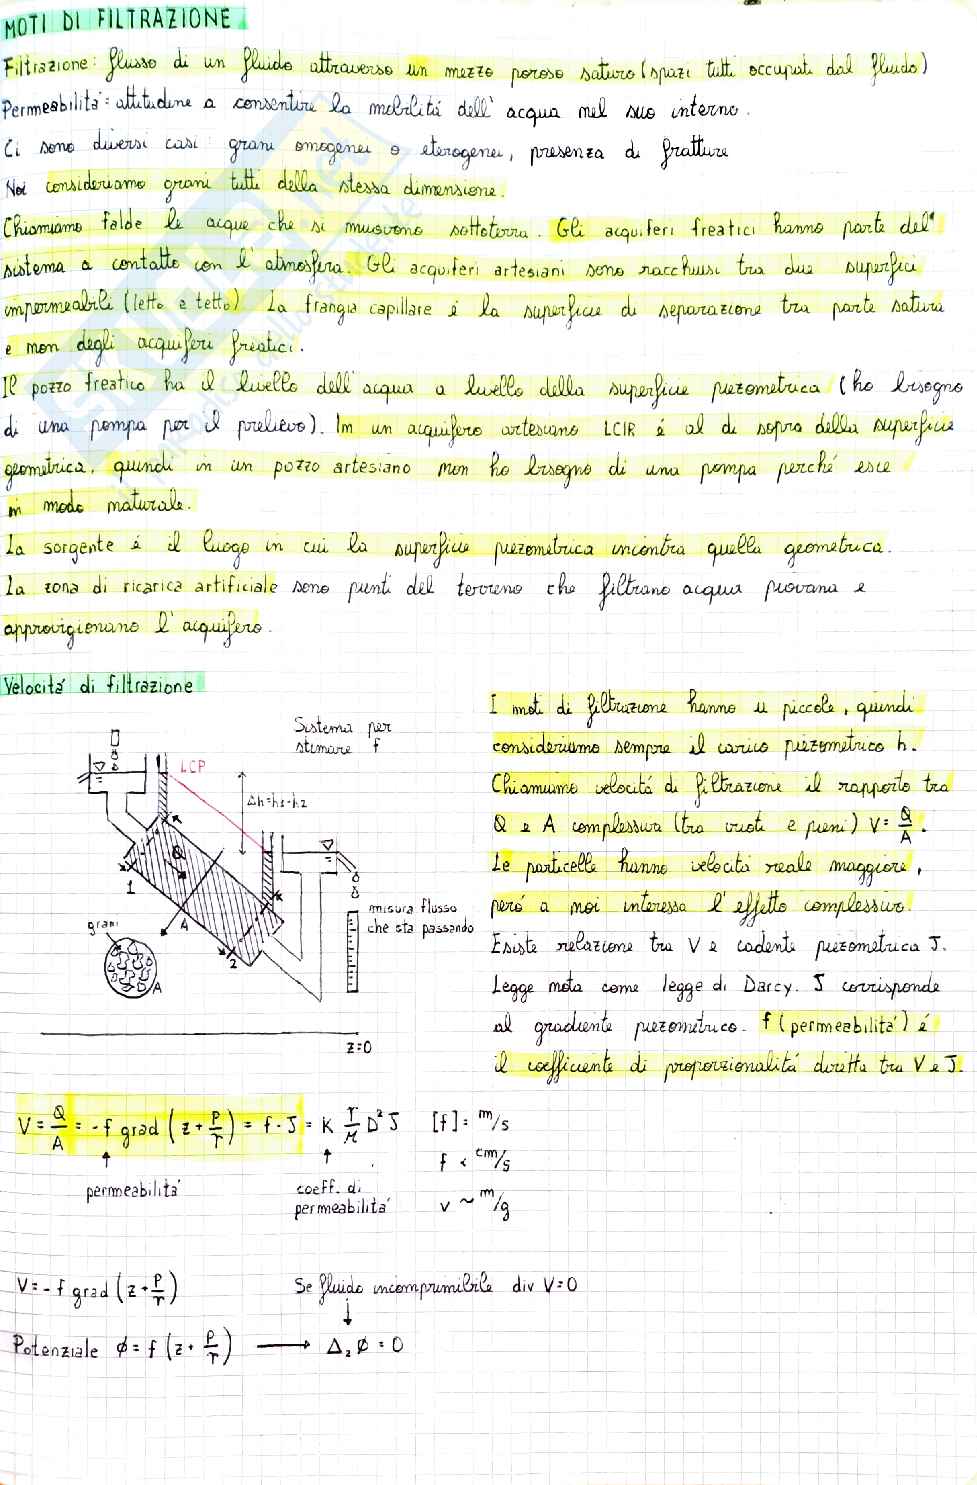 MOTI DI FILTRAZIONE
Filtrazione: flusso di un fluido attraverso un mezzo poroso saturo (spazi tutti occupati dal fluido)
Permeabilitá: attitudine a consentire la mobilitá dell'acqua nel suo interno.
Ci sono diversi casi: grani omogenei o eterogenei, presenza di fratture
Noi consideriamo grani tutti della stessa dimensione.
Chiamiamo falde le acque che si muovono sottoterra. Gli acquiferi freatici hanno parte del
sistema a contatto con l'atmosfera. Gli acquiferi artesiani sono racchiusi tra due superfici
impermeabili (letto e tetto). La frangia capillare é la superficie di separazione tra parte satura
e non degli acquiferi freatici.
Il pozzo freatico ha il livello dell'acqua a livello della superficie piezometrica (ho bisogno
di una pompa per il prelievo). In un acquifero artesiano LCIR é al di sopra della superficie
geometrica, quindi in un pozzo artesiano non ho bisogno di una pompa perché esce
in modo naturale.
La sorgente é il luogo in cui la superficie piezometrica incontra quella geometrica.
La zona di ricarica artificiale sono punti del terreno che filtrano acqua piovana e
approvigionano l'acquifero.
Velocitá di filtrazione
Sistema per
stimare f
LCP
Δh=h1-h2
Q
1
A
2
grani
A
misura flusso
che sta passando
z=0
I moti di filtrazione hanno u piccole, quindi
consideriamo sempre il carico piezometrico h.
Chiamiamo velocitá di filtrazione il rapporto tra
Q e A complessiva (tra vuoti e pieni) V=Q/A.
Le particelle hanno velocitá reale maggiore,
peró a noi interessa l'effetto complessivo.
Esiste relazione tra V e cadente piezometrica J.
Legge nota come legge di Darcy. J corrisponde
al gradiente piezometrico. f (permeabilitá) é
il coefficiente di proporzionalitá diretta tra V e J.
V=Q/A = -f grad (z+p/γ) = f·J = K γ/μ D² J [f]= m/s
f < cm/s
permeabilitá
coeff. di
permeabilitá
v ~ m/g
V=-f grad (z+p/γ) Se fluido incomprimibile div V=0
Potenziale ϕ=f(z+p/γ) → Δ₂ϕ=0